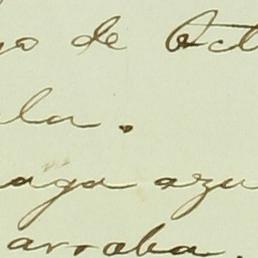 go de Oct
la.
aga azu
arroba.